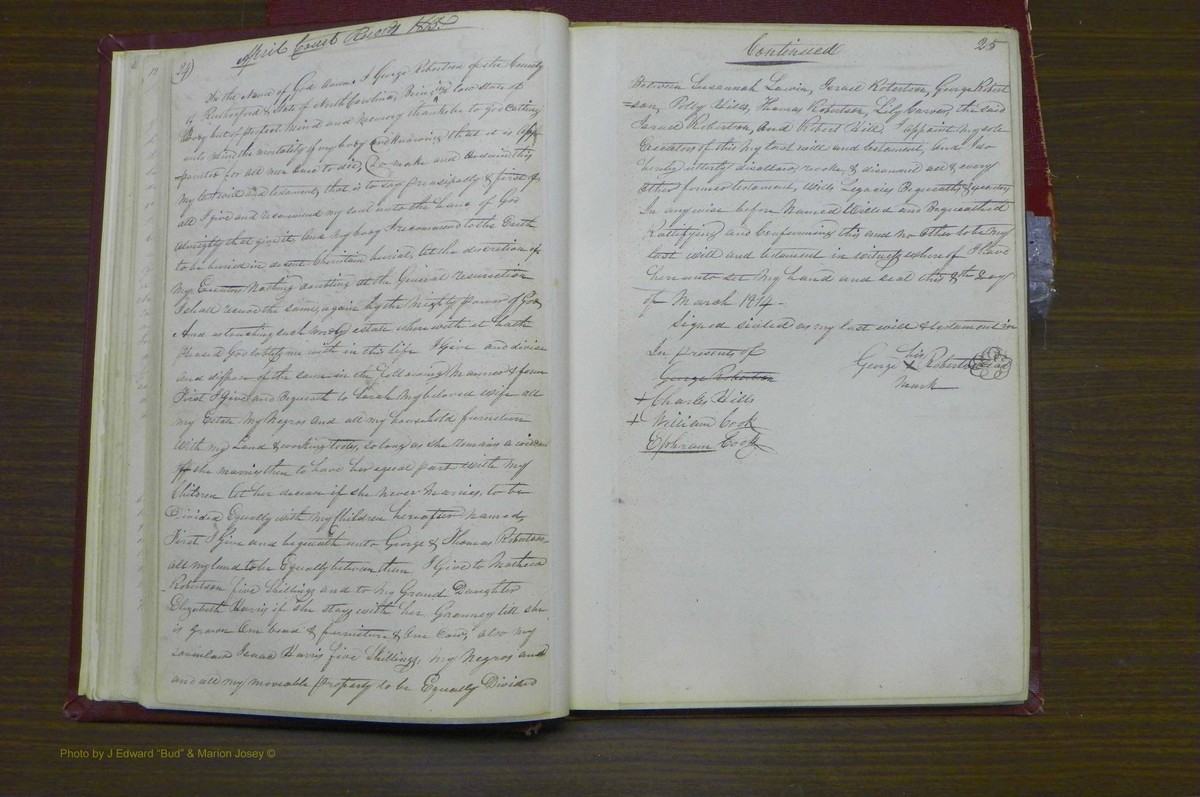 24)
April Court Record 1835
In the Name of God Amen, I George Robertson of the County
of Rutherford & State of North Carolina, Being in low State of
Body, but of perfect Mind and Memory thanks be to God Calling
unto mind the mortality of my body and Knowing that it is App
=pointed for all men once to die, Do make and Ordain this
my last will and testament, that is to say Principally & first of
all I give and recommend my soul unto the hand of God
Almighty that give it and my body I recommend to the Earth
to be buried in decent Christian burial, at the discretion of
my Executors Nothing doubting at the General resurrection
I shall receive the same again by the Mighty power of God
And as touching such wordly estate wherewith it hath
pleased God to bless me with in this life I Give and divise
and dispose of the same in the following Manner & form
First I Give and Bequeath to Sarah My beloved Wife all
my Estate My Negros and all my household furniture
With my Land & working tools, so long as she remains a widow
If she marries then to have her equal part with My
Children at her decease if she never Marries, to be
Divided Equally with my Children hereafter named,
First I Give and bequeath unto George & Thomas Robertson
all my land to be Equally between them I Give to
Robertson five Shillings and to my Grand Daughter
Elizabeth Harris if she stays with her Granney till she
is Grown One bead & furniture & One Cow, also my
soninlaw Isaac Harris five Shillings, My Negros and
and all my moveable property to be Equally Divided
Continued
25
Between Susannah Israel Robertson, George Robert
=son, Polly Wills, Thomas Robertson, Lily Carver, the said
Israel Robertson, And Robert Will I appoint my sole
Executors of this My last will and testament, and I do
hereby utterly disallow, revoke, & disannul all & every
other former testament, Wills Legacies Bequeaths & Executors
In anywise before Named Willed and Bequeathed
Rattifying and Confirming this and no other to be my
last will and testament in witness whereof I have
hereunto set my hand and seal this 8th day
of March 1814 -
Signed sealed as my last will & testament in
In presents of
George his X Robertson seal
mark
George Robertson
+ Charles Wills
+ William Cook
Ephraim Cook
Photo by J Edward "Bud" & Marion Josey ©